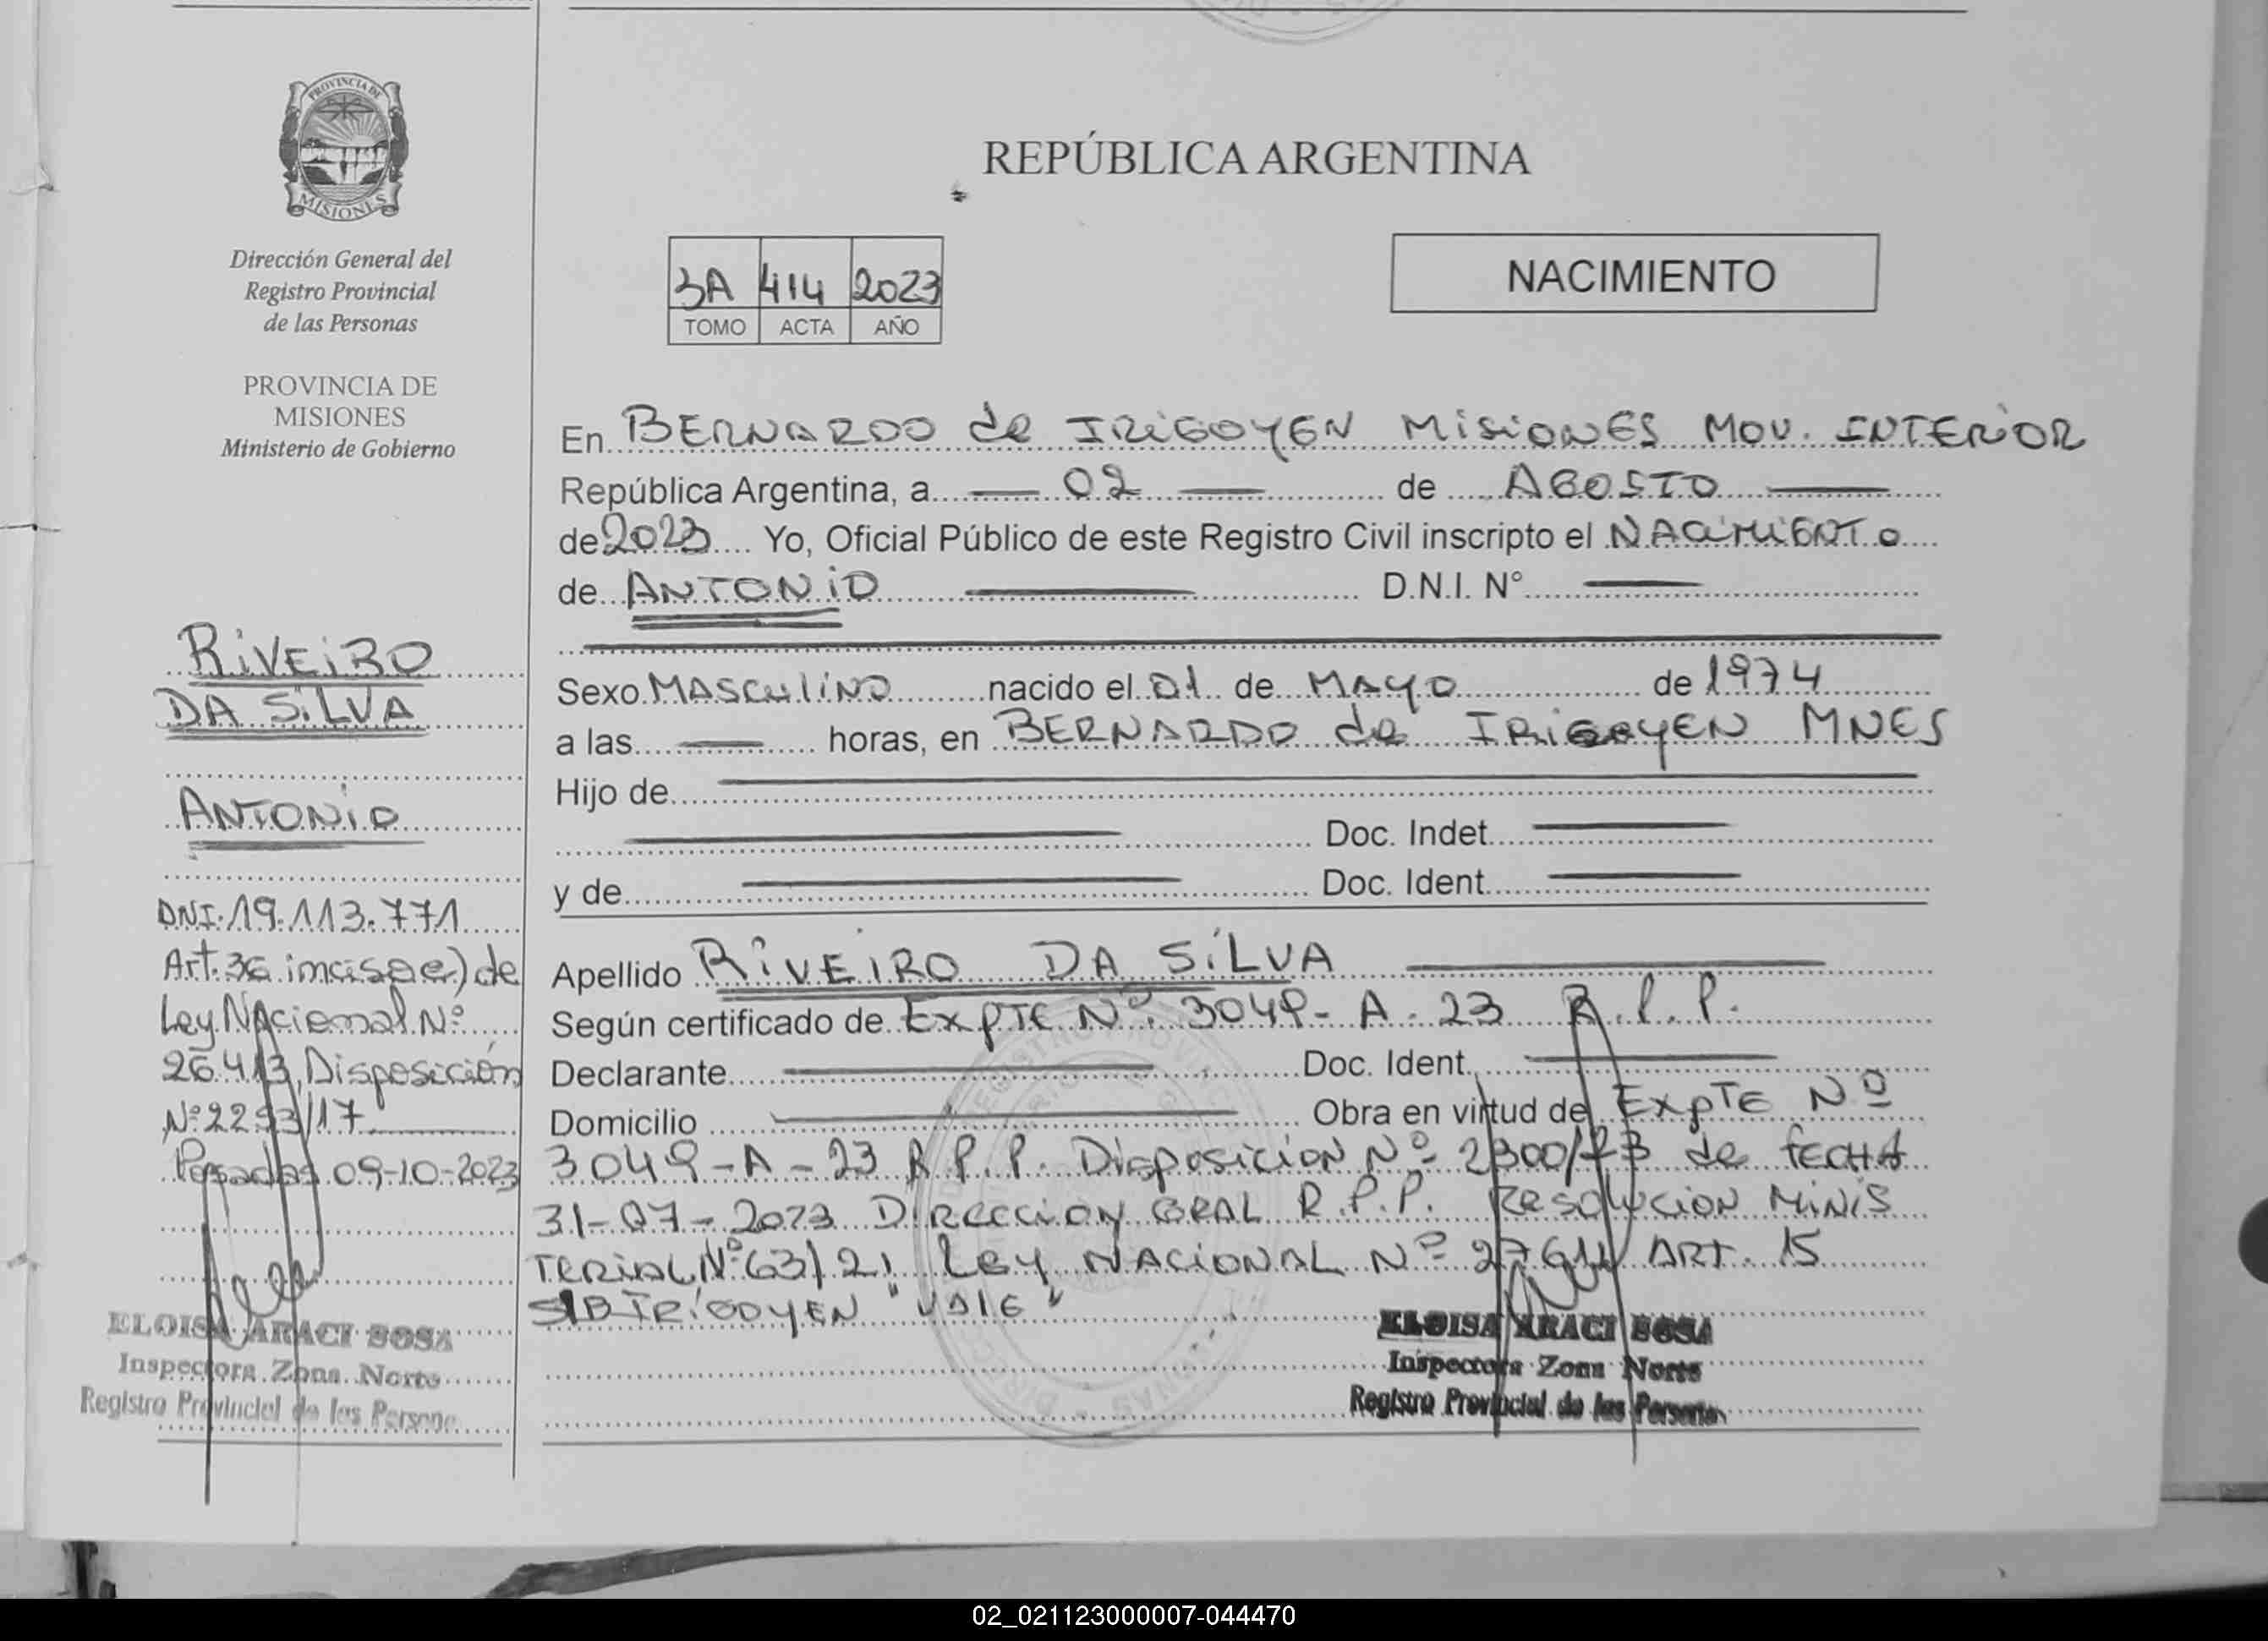 PROVINCIA DE
MISIONES
Dirección General del
Registro Provincial
de las Personas
PROVINCIA DE
MISIONES
Ministerio de Gobierno
RIVEIRO
DA SILVA
ANTONIO
DNI. 19.113.771
Art. 36 inciso e) de
Ley Nacional Nº
26.413, Disposición
Nº 2293/17
Posadas 09-10-2023
ELOISA ARACI SOSA
Inspectora Zona Norte
Registro Provincial de las Persona
REPÚBLICA ARGENTINA
3A 414 2023
TOMO ACTA AÑO
NACIMIENTO
En BERNARDO de IRIGOYEN MISIONES MOV. INTERIOR
República Argentina, a 02 de AGOSTO
de 2023 Yo, Oficial Público de este Registro Civil inscripto el NACIMIENTO
de ANTONIO D.N.I. N°
Sexo MASCULINO nacido el 01 de MAYO de 1974
a las horas, en BERNARDO de IRIGOYEN MNES
Hijo de
Doc. Indet.
y de Doc. Ident.
Apellido RIVEIRO DA SILVA
Según certificado de EXPTE Nº 3049-A-23 R.P.P.
Declarante Doc. Ident.
Domicilio Obra en virtud de EXPTE Nº
3049-A-23 R.P.P. DISPOSICION Nº 2300/23 de FECHA
31-07-2023 DIRECCION GRAL R.P.P. RESOLUCION MINIS
TERIAL Nº 63/21 LEY NACIONAL Nº 27611 ART. 15
IRIGOYEN "VALE"
ELOISA ARACI SOSA
Inspectora Zona Norte
Registro Provincial de las Personas
02_021123000007-044470